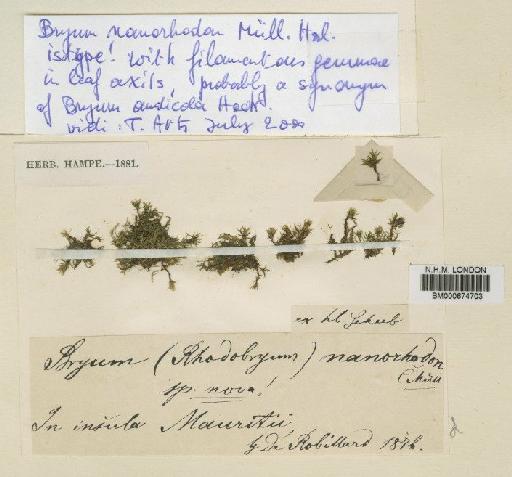 Bryum nanorhodon Müll. Hal.
isotype! with filamentous gemmae
in leaf axils, probably a synonym
of Bryum andicola Hook.
vidi: T. Arts July 2000
HERB. HAMPE.—1881.
N.H.M. LONDON
BM000674703
ex hb
Bryum (Rhodobryum) nanorhodon
(Müll
sp. nova!
In insula Mauritii
de Robillard